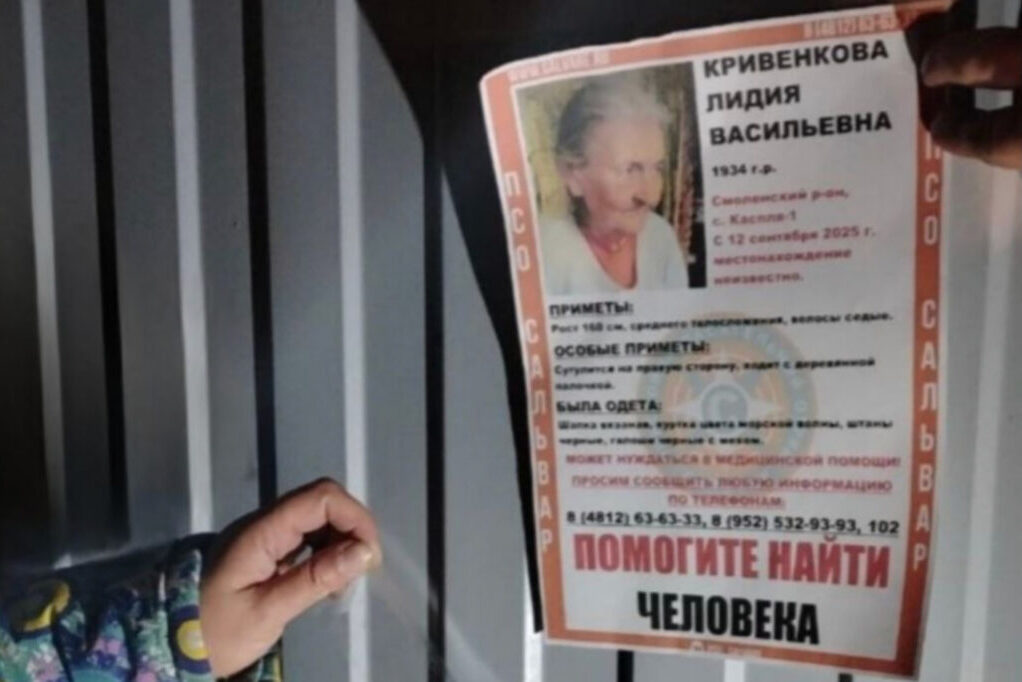 WWW.SALVARE.RU
8 (4812) 63-63-
КРИВЕНКОВА
ЛИДИЯ
ВАСИЛЬЕВНА
1934 г.р.
Смоленский р-он,
с. Каспля-1
С 12 сентября 2025 г.
местонахождение
неизвестно.
ПРИМЕТЫ:
Рост 160 см, среднего телосложения, волосы седые.
ОСОБЫЕ ПРИМЕТЫ:
Сутулится на правую сторону, ходит с деревянной
палочкой.
БЫЛА ОДЕТА:
Шапка вязаная, куртка цвета морской волны, штаны
черные, галоши черные с мехом.
МОЖЕТ НУЖДАТЬСЯ В МЕДИЦИНСКОЙ ПОМОЩИ!
ПРОСИМ СООБЩИТЬ ЛЮБУЮ ИНФОРМАЦИЮ
ПО ТЕЛЕФОНАМ:
8 (4812) 63-63-33, 8 (952) 532-93-93, 102
ПОМОГИТЕ НАЙТИ
ЧЕЛОВЕКА
ПСО САЛЬВАР
ПСО САЛЬВАР